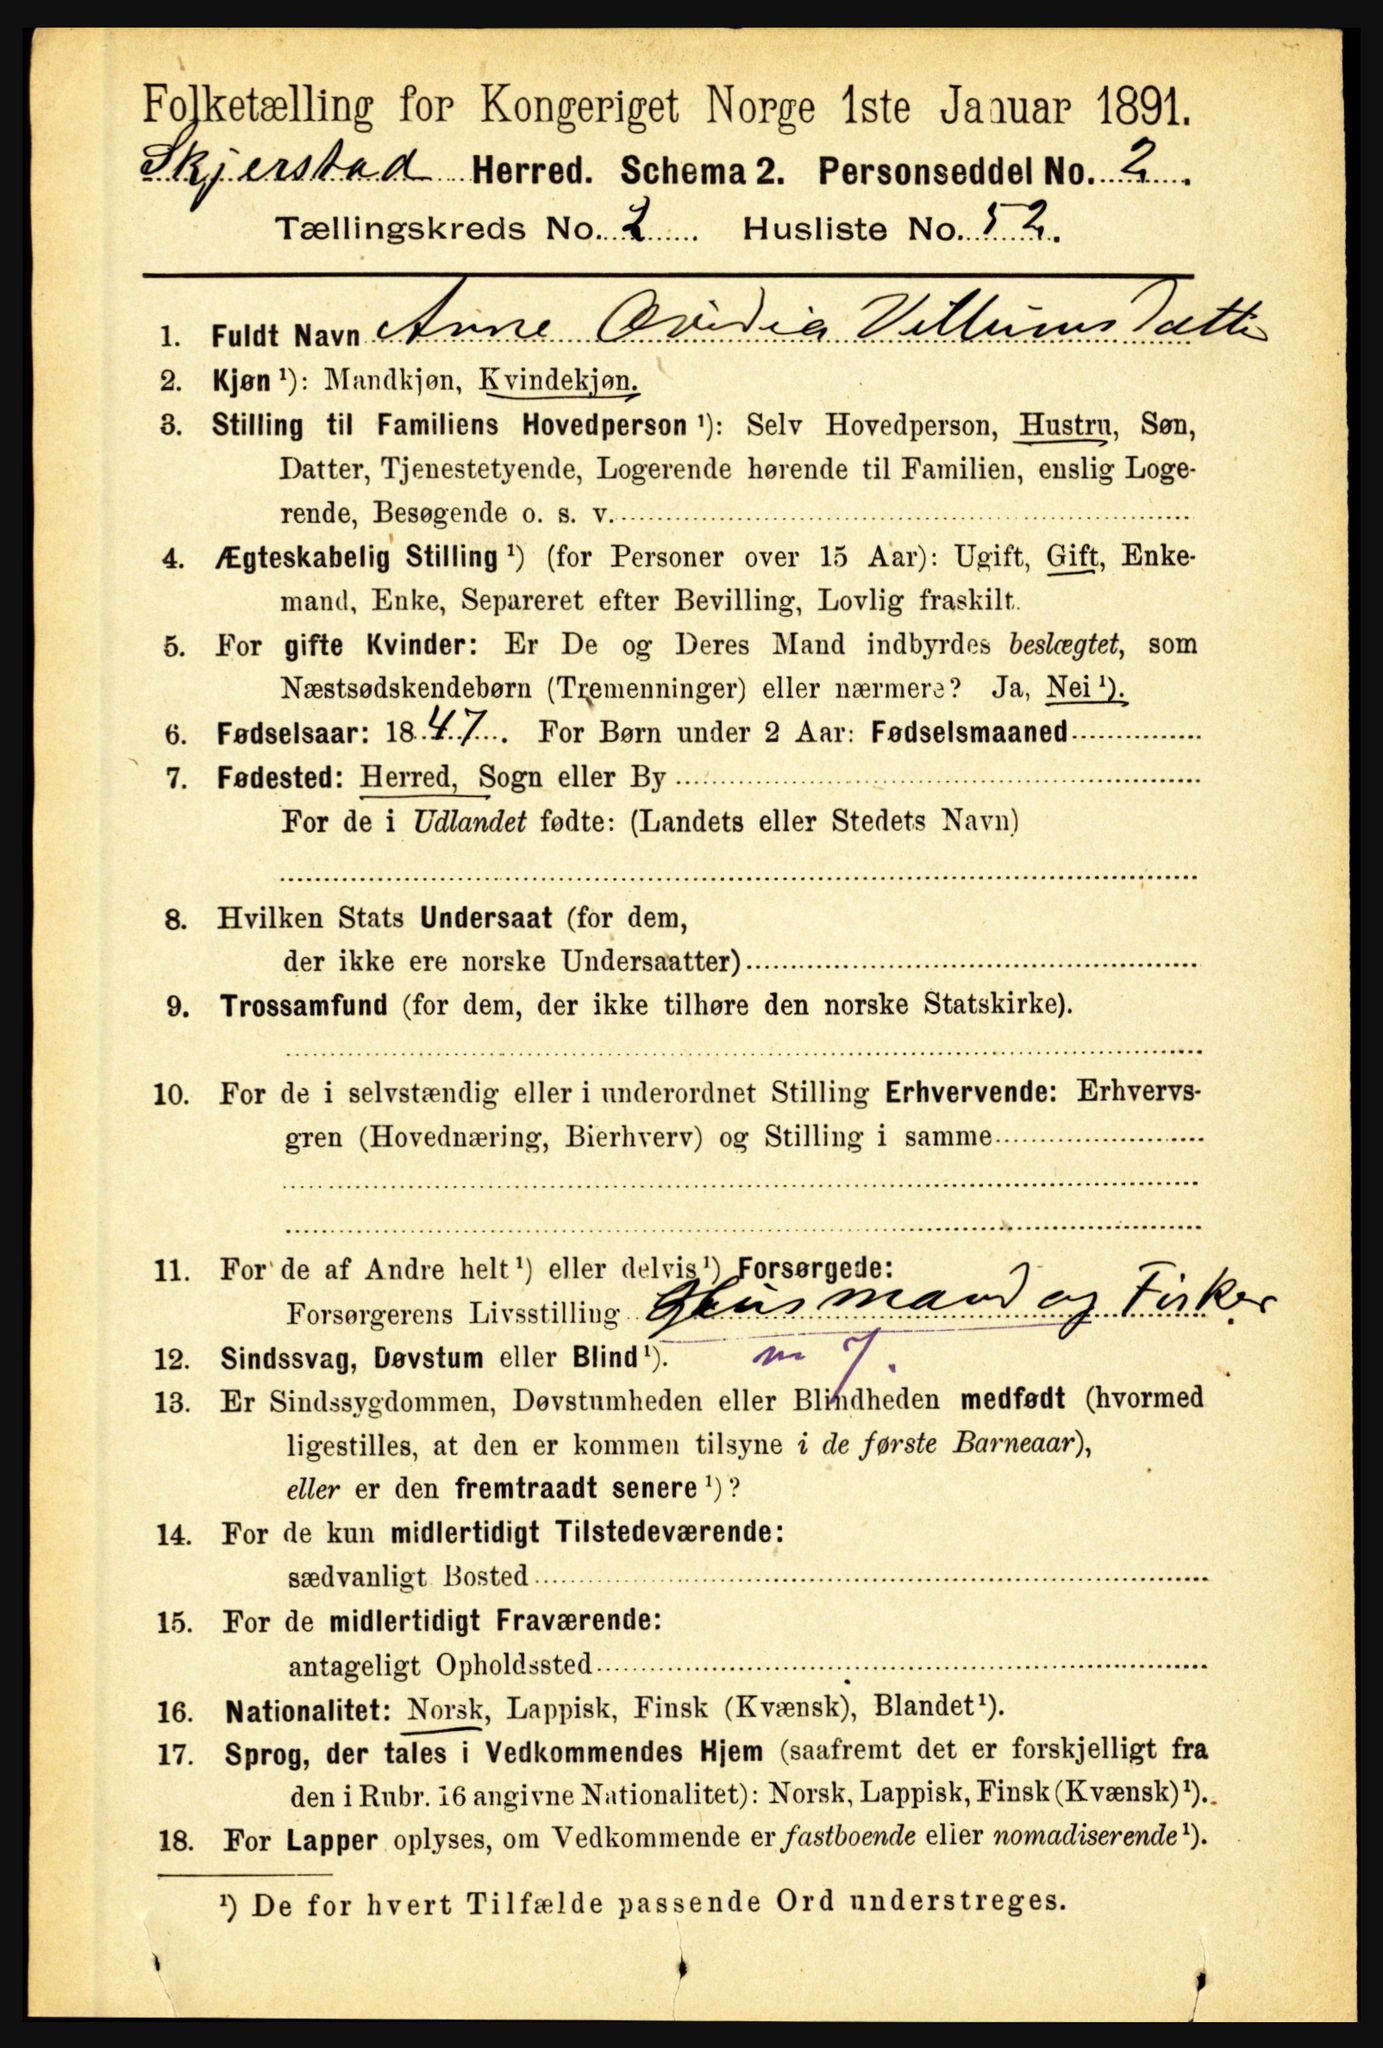 Folketælling for Kongeriget Norge 1ste Januar 1891.
Skjerstad Herred. Schema 2. Personseddel No. 2.
Tællingskreds No. 2 Husliste No. 52.
1. Fuldt Navn Anne Ovidia Villumsdatter
2. Kjøn ¹): Mandkjøn, Kvindekjøn.
3. Stilling til Familiens Hovedperson ¹): Selv Hovedperson, Hustru, Søn,
Datter, Tjenestetyende, Logerende hørende til Familien, enslig Loge-
rende, Besøgende o. s. v.
4. Ægteskabelig Stilling ¹) (for Personer over 15 Aar): Ugift, Gift, Enke-
mand, Enke, Separeret efter Bevilling, Lovlig fraskilt.
5. For gifte Kvinder: Er De og Deres Mand indbyrdes beslægtet, som
Næstsødskendebørn (Tremenninger) eller nærmere? Ja, Nei ¹).
6. Fødselsaar: 1847. For Børn under 2 Aar: Fødselsmaaned
7. Fødested: Herred, Sogn eller By
For de i Udlandet fødte: (Landets eller Stedets Navn)
8. Hvilken Stats Undersaat (for dem,
der ikke ere norske Undersaatter)
9. Trossamfund (for dem, der ikke tilhøre den norske Statskirke).
10. For de i selvstændig eller i underordnet Stilling Erhvervende: Erhvervs-
gren (Hovednæring, Bierhverv) og Stilling i samme
11. For de af Andre helt ¹) eller delvis ¹) Forsørgede:
Forsørgerens Livsstilling Husmand og Fisker
12. Sindssvag, Døvstum eller Blind ¹). m 7.
13. Er Sindssygdommen, Døvstumheden eller Blindheden medfødt (hvormed
ligestilles, at den er kommen tilsyne i de første Barneaar),
eller er den fremtraadt senere ¹)?
14. For de kun midlertidigt Tilstedeværende:
sædvanligt Bosted
15. For de midlertidigt Fraværende:
antageligt Opholdssted
16. Nationalitet: Norsk, Lappisk, Finsk (Kvænsk), Blandet ¹).
17. Sprog, der tales i Vedkommendes Hjem (saafremt det er forskjelligt fra
den i Rubr. 16 angivne Nationalitet): Norsk, Lappisk, Finsk (Kvænsk) ¹).
18. For Lapper oplyses, om Vedkommende er fastboende eller nomadiserende ¹).
¹) De for hvert Tilfælde passende Ord understreges.